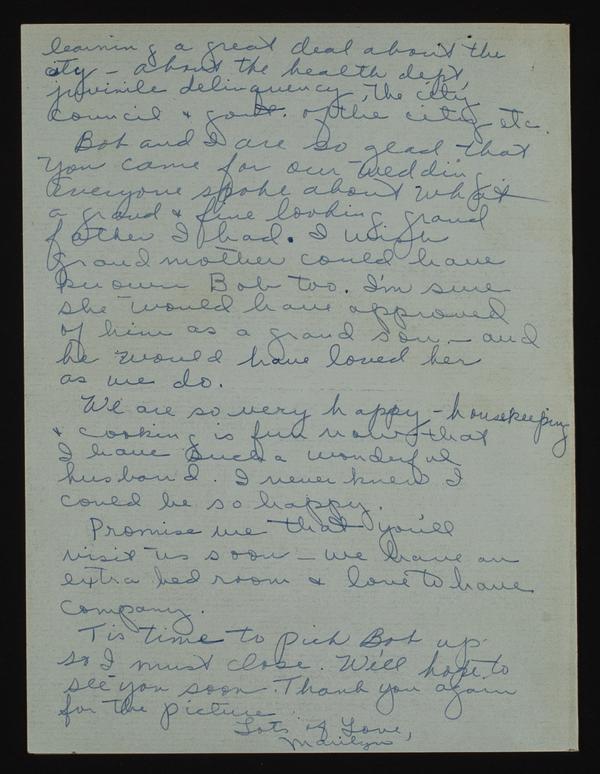 learning a great deal about the
city - about the health dept,
juvenile delinquency, the city
council & govt. of the city etc.
Bob and I are so glad that
you came for our wedding.
Everyone spoke about what
a grand & fine looking grand
father I had. I wish
grandmother could have
known Bob too. I'm sure
she would have approved
of him as a grand son - and
he would have loved her
as we do.
We are so very happy - housekeeping
& cooking is fun now that
I have such a wonderful
husband. I never knew I
could be so happy.
Promise me that you'll
visit us soon - we have an
extra bed room & love to have
company.
Tis time to pick Bob up
so I must close. We'll hope to
see you soon. Thank you again
for the picture.
Lots of Love,
Marilyn